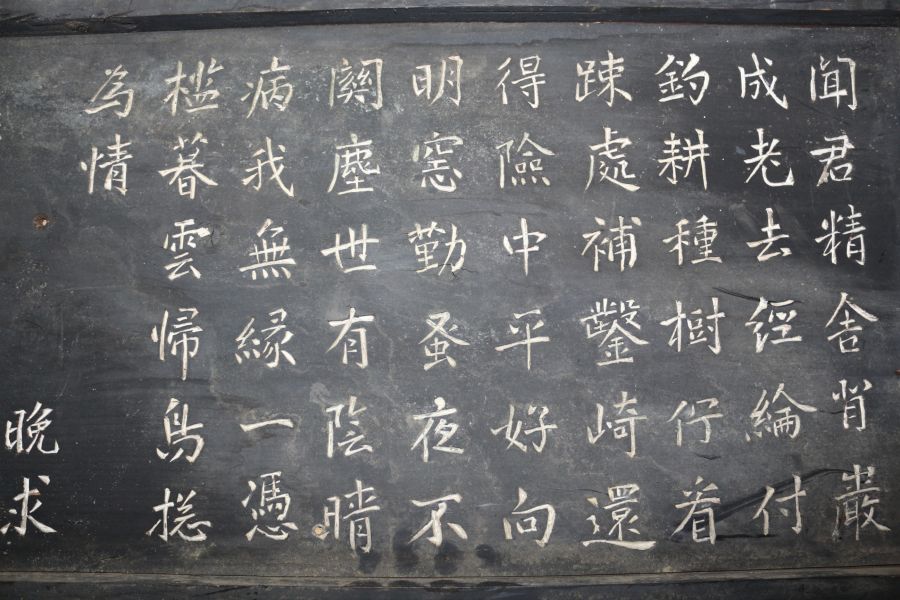 聞君精舎肯巖
成老去經綸付
釣耕種樹佇看
踈處補鑿崎還
得險中平好向
明窓勤蚤夜不
關塵世有陰晴
病我無緣一憑
槛暮雲帰鳥捴
為情
晩求